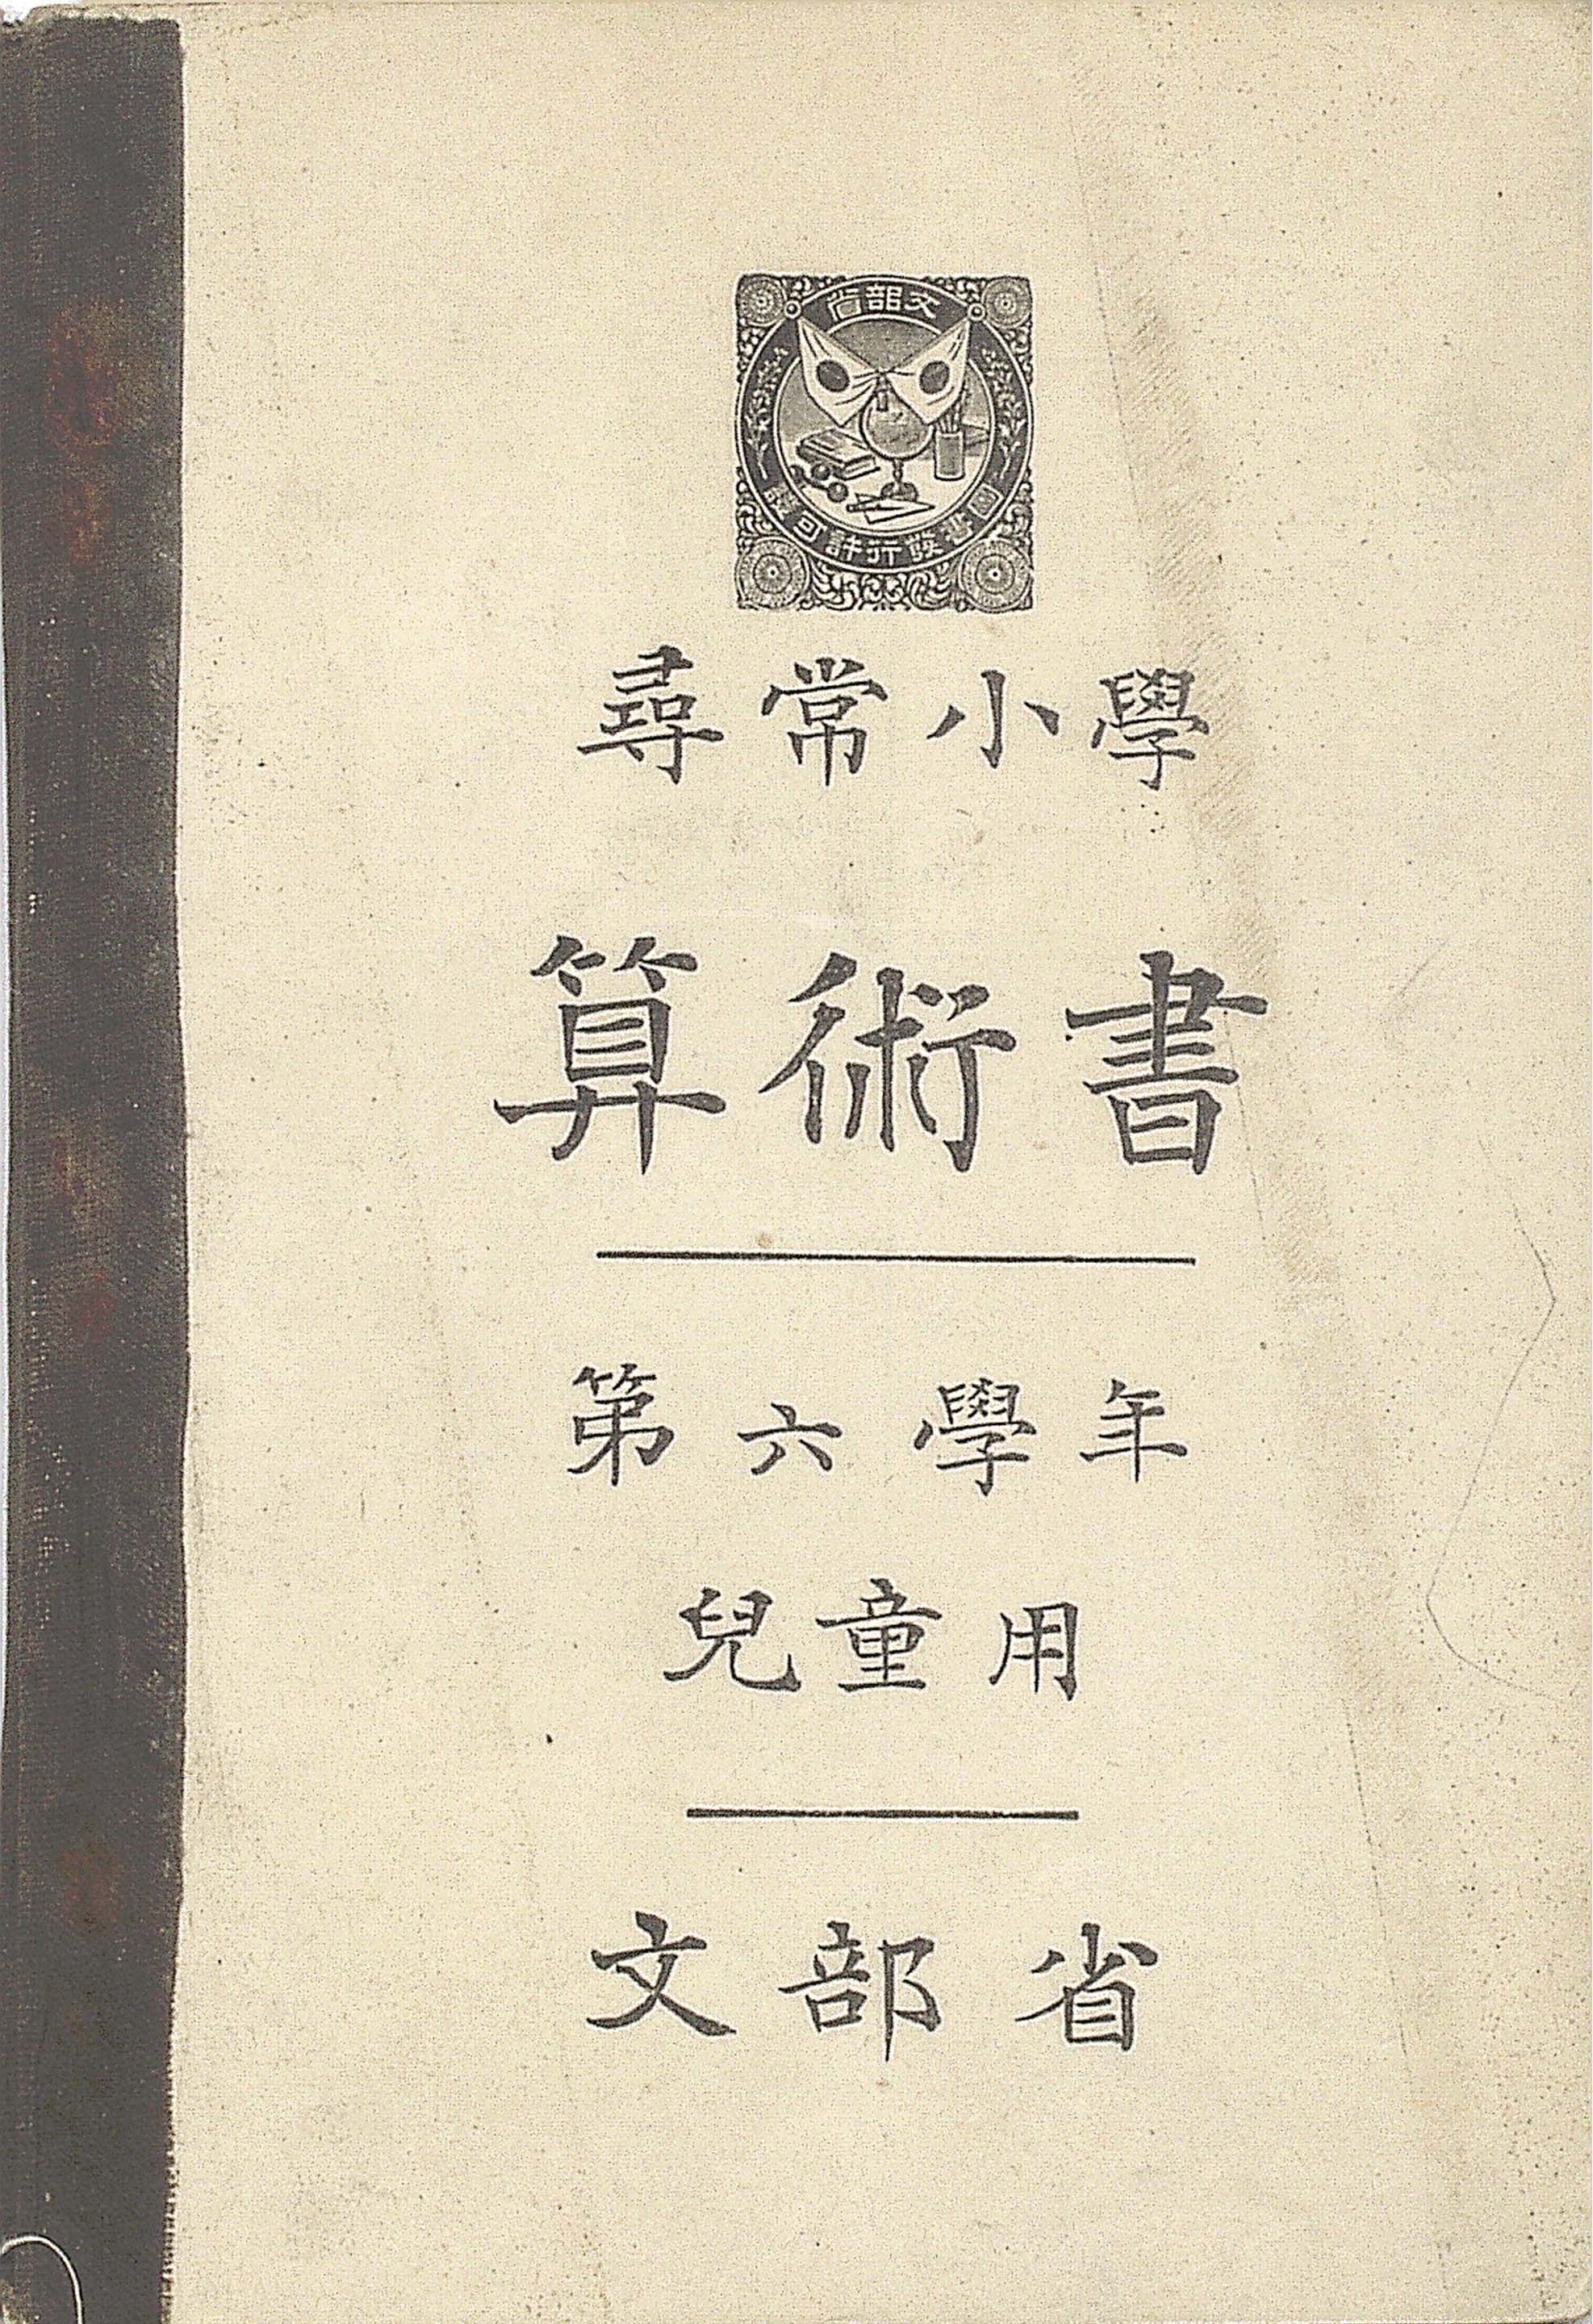 文部省
圖書發行許可證
尋常小學
算術書
第六學年
兒童用
文部省